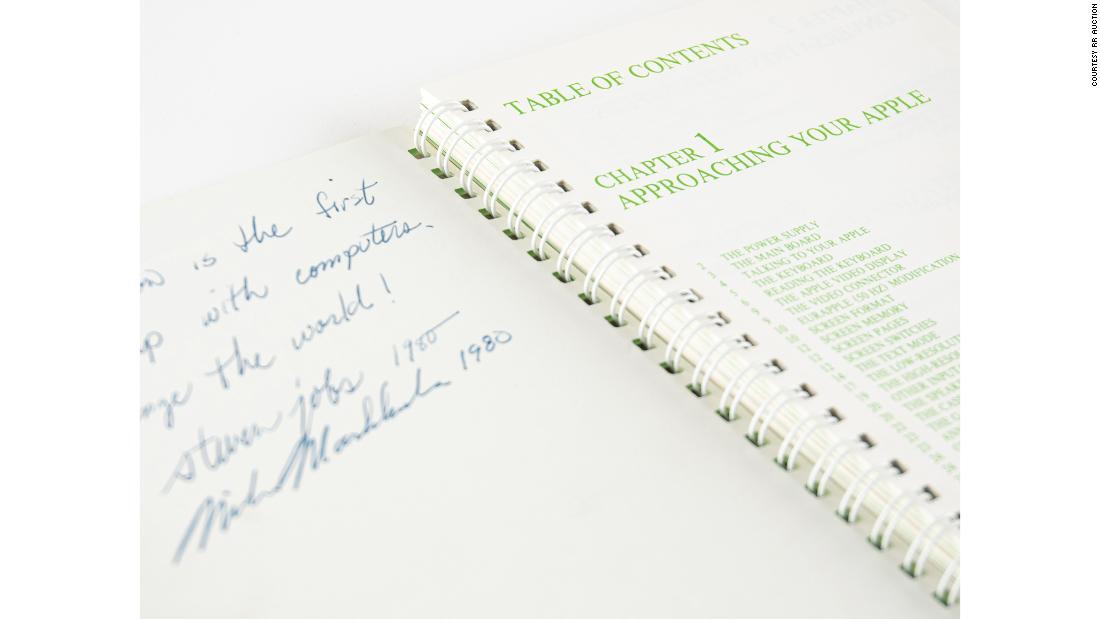 is the first
with computers.
the world!
steven jobs 1980
Mike Markkula 1980
TABLE OF CONTENTS
CHAPTER 1
APPROACHING YOUR APPLE
2 THE POWER SUPPLY
3 THE MAIN BOARD
4 TALKING TO YOUR APPLE
5 THE KEYBOARD
6 READING THE KEYBOARD
9 THE APPLE VIDEO DISPLAY
9 THE VIDEO CONNECTOR
10 EURAPPLE (50 HZ) MODIFICATION
10 SCREEN FORMAT
12 SCREEN MEMORY
12 SCREEN PAGES
12 SCREEN SWITCHES
THE TEXT MODE
THE LOW-RESOLU
THE HIGH-RESOL
OTHER INPU
THE SPEAK
THE CAS
COURTESY RR AUCTION